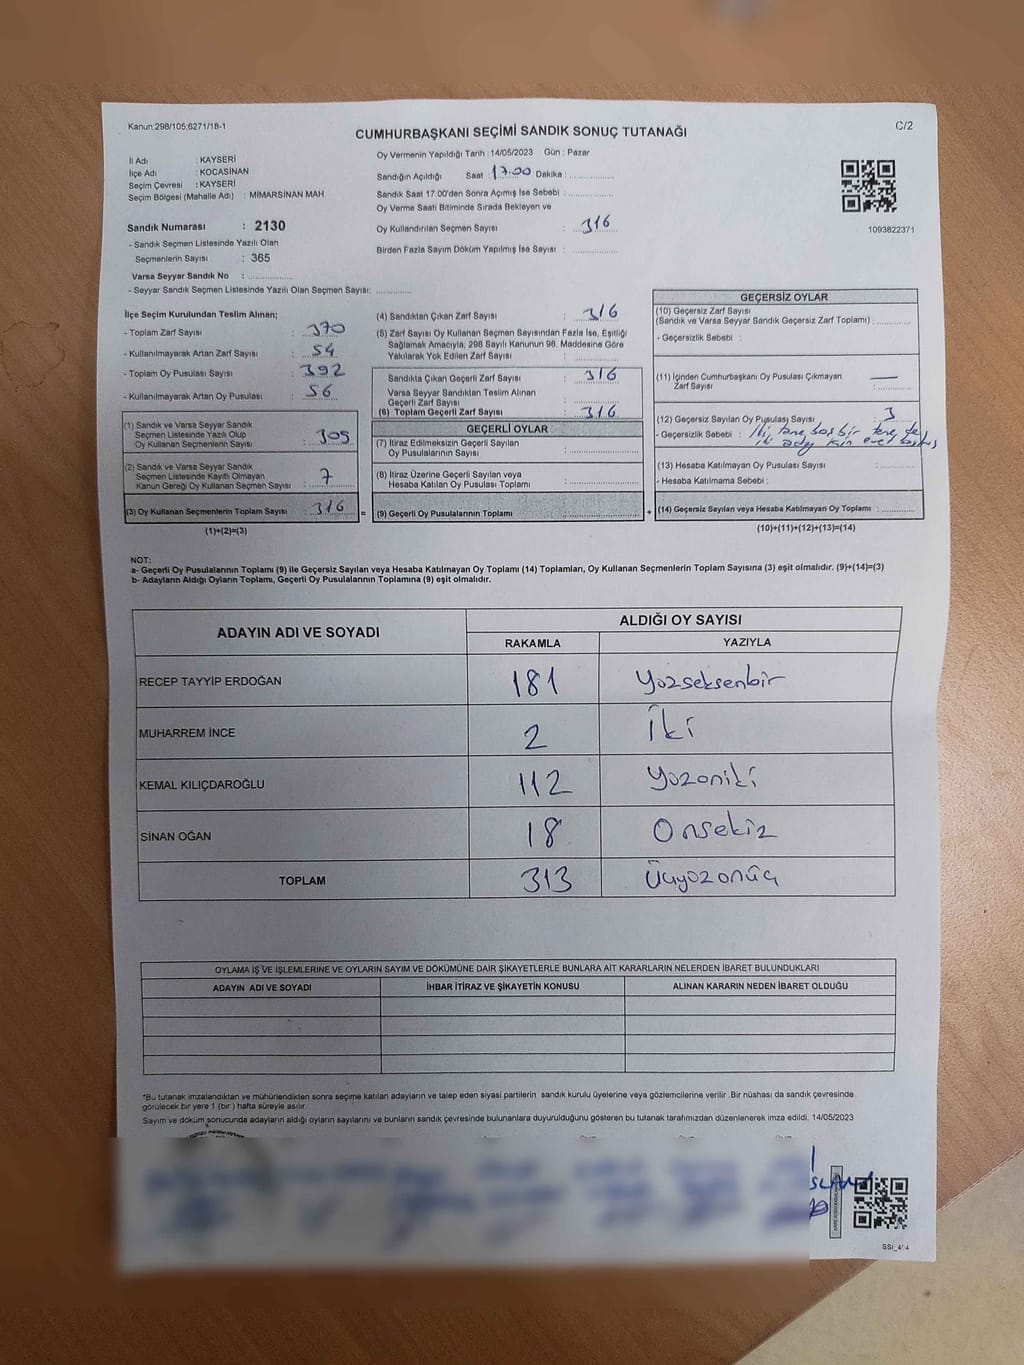 Kanun:298/105;6271/18-1
CUMHURBAŞKANI SEÇİMİ SANDIK SONUÇ TUTANAĞI
C/2
İl Adı : KAYSERİ
İlçe Adı : KOCASİNAN
Seçim Çevresi : KAYSERİ
Seçim Bölgesi (Mahalle Adı) : MİMARSİNAN MAH.
Sandık Numarası : 2130
- Sandık Seçmen Listesinde Yazılı Olan
Seçmenlerin Sayısı : 365
Varsa Seyyar Sandık No :
- Seyyar Sandık Seçmen Listesinde Yazılı Olan Seçmen Sayısı:
Oy Vermenin Yapıldığı Tarih : 14/05/2023 Gün : Pazar
Sandığın Açıldığı Saat : 17.00 Dakika :
Sandık Saat 17.00'den Sonra Açımış İse Sebebi :
Oy Verme Saati Bitiminde Sırada Bekleyen ve
Oy Kullandırılan Seçmen Sayısı : 316
Birden Fazla Sayım Döküm Yapılmış İse Sayısı :
1093822371
İlçe Seçim Kurulundan Teslim Alınan;
- Toplam Zarf Sayısı : 370
- Kullanılmayarak Artan Zarf Sayısı : 54
- Toplam Oy Pusulası Sayısı : 392
- Kullanılmayarak Artan Oy Pusulası : 56
(1) Sandık ve Varsa Seyyar Sandık
Seçmen Listesinde Yazılı Olup
Oy Kullanan Seçmenlerin Sayısı : 309
(2) Sandık ve Varsa Seyyar Sandık
Seçmen Listesinde Kayıtlı Olmayan
Kanun Gereği Oy Kullanan Seçmen Sayısı : 7
(3) Oy Kullanan Seçmenlerin Toplam Sayısı : 316
(1)+(2)=(3)
(4) Sandıktan Çıkan Zarf Sayısı : 316
(5) Zarf Sayısı Oy Kullanan Seçmen Sayısından Fazla İse, Eşitliği
Sağlamak Amacıyla; 298 Sayılı Kanunun 98. Maddesine Göre
Yakılarak Yok Edilen Zarf Sayısı :
Sandıkta Çıkan Geçerli Zarf Sayısı : 316
Varsa Seyyar Sandıktan Teslim Alınan
Geçerli Zarf Sayısı :
(6) Toplam Geçerli Zarf Sayısı : 316
GEÇERLİ OYLAR
(7) İtiraz Edilmeksizin Geçerli Sayılan
Oy Pusulalarının Sayısı :
(8) İtiraz Üzerine Geçerli Sayılan veya
Hesaba Katılan Oy Pusulası Toplamı :
= (9) Geçerli Oy Pusulalarının Toplamı :
GEÇERSİZ OYLAR
(10) Geçersiz Zarf Sayısı
(Sandık ve Varsa Seyyar Sandık Geçersiz Zarf Toplamı) :
- Geçersizlik Sebebi :
(11) İçinden Cumhurbaşkanı Oy Pusulası Çıkmayan
Zarf Sayısı : —
(12) Geçersiz Sayılan Oy Pusulası Sayısı : 3
- Geçersizlik Sebebi : İki tane boş bir tane de
iki aday için evet basılmış
(13) Hesaba Katılmayan Oy Pusulası Sayısı :
- Hesaba Katılmama Sebebi :
+ (14) Geçersiz Sayılan veya Hesaba Katılmayan Oy Toplamı :
(10)+(11)+(12)+(13)=(14)
NOT:
a- Geçerli Oy Pusulalarının Toplamı (9) ile Geçersiz Sayılan veya Hesaba Katılmayan Oy Toplamı (14) Toplamları, Oy Kullanan Seçmenlerin Toplam Sayısına (3) eşit olmalıdır. (9)+(14)=(3)
b- Adayların Aldığı Oyların Toplamı, Geçerli Oy Pusulalarının Toplamına (9) eşit olmalıdır.
ADAYIN ADI VE SOYADI ALDIĞI OY SAYISI
RAKAMLA YAZIYLA
RECEP TAYYİP ERDOĞAN 181 Yüzseksenbir
MUHARREM İNCE 2 İki
KEMAL KILIÇDAROĞLU 112 Yüzoniki
SİNAN OĞAN 18 Onsekiz
TOPLAM 313 Üçyüzonüç
OYLAMA İŞ VE İŞLEMLERİNE VE OYLARIN SAYIM VE DÖKÜMÜNE DAİR ŞİKAYETLERLE BUNLARA AİT KARARLARIN NELERDEN İBARET BULUNDUKLARI
ADAYIN ADI VE SOYADI İHBAR İTİRAZ VE ŞİKAYETİN KONUSU ALINAN KARARIN NEDEN İBARET OLDUĞU
*Bu tutanak imzalandıktan ve mühürlendikten sonra seçime katılan adayların ve talep eden siyasi partilerin sandık kurulu üyelerine veya gözlemcilerine verilir. Bir nüshası da sandık çevresinde
görülecek bir yere 1 (bir) hafta süreyle asılır.
Sayım ve döküm sonucunda adayların aldığı oyların sayılarını ve bunların sandık çevresinde bulunanlara duyurulduğunu gösteren bu tutanak tarafımızdan düzenlenerek imza edildi. 14/05/2023